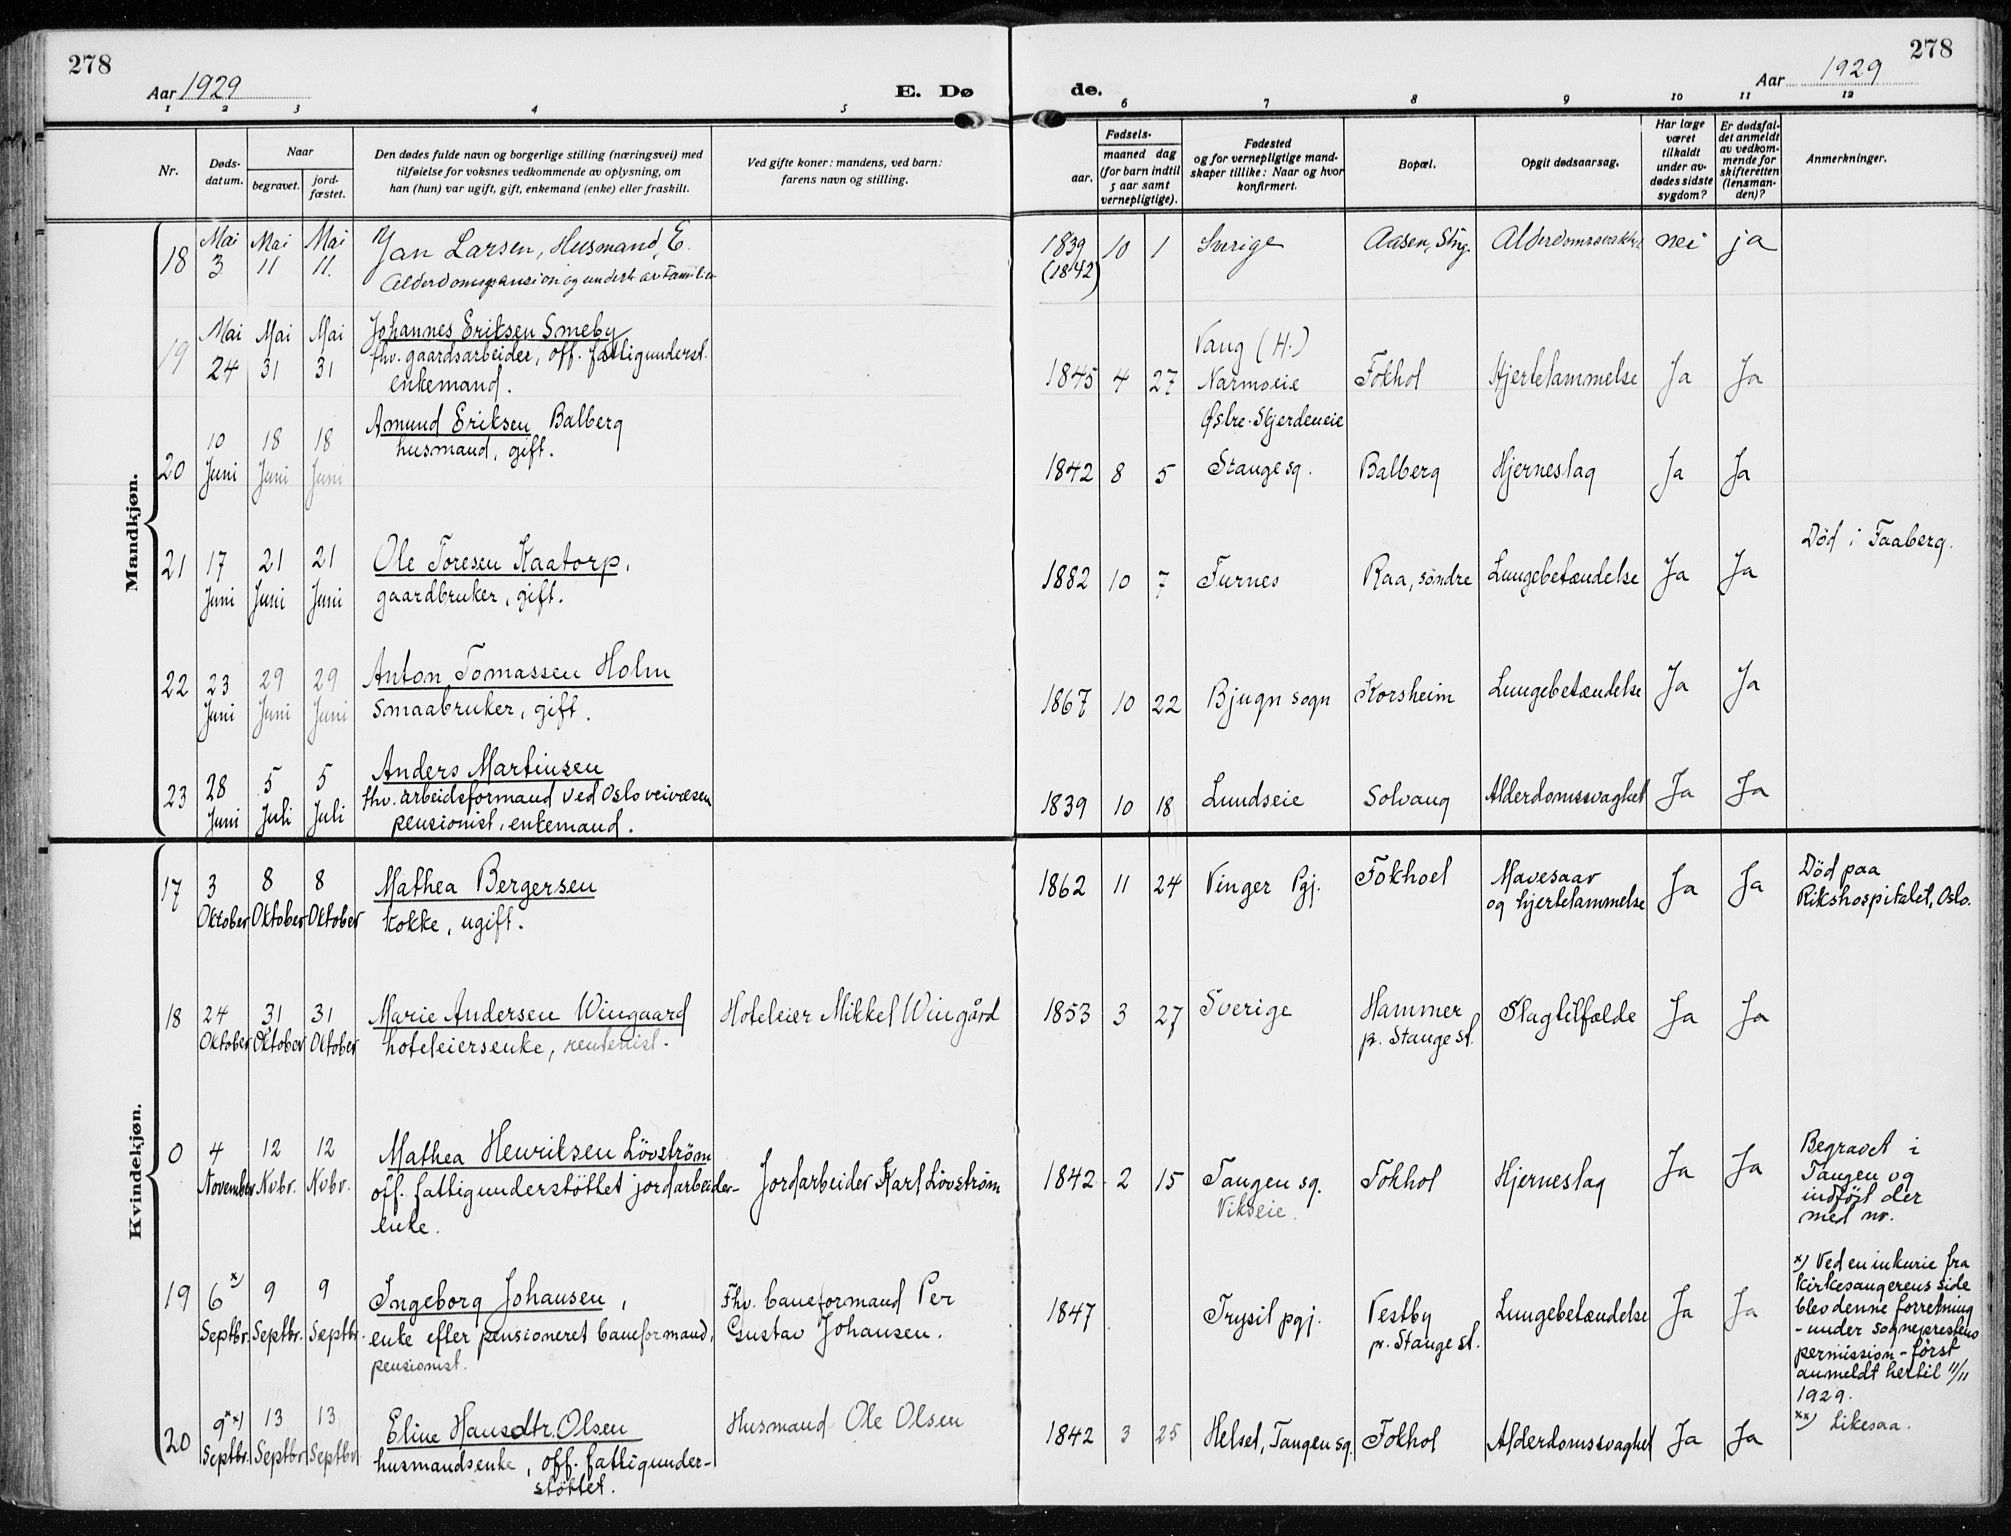 278
Aar 1929
E. Dø
de.
Aar 1929
278
1 2 3 4 5 6 7 8 9 10 11 12
Nr.
Døds-
datum.
Naar
begravet.
jord-
fæstet.
Den dødes fulde navn og borgerlige stilling (næringsvei) med
tilføielse for voksnes vedkommende av oplysning, om
han (hun) var ugift, gift, enkemand (enke) eller fraskilt.
Ved gifte koner: mandens, ved barn:
farens navn og stilling.
Fødsels-
aar.
maaned dag
(for barn indtil
5 aar samt
vernepligtige).
Fødested
og for vernepligtige mand-
skaper tillike: Naar og hvor
konfirmert.
Bopæl.
Opgit dødsaarsag.
Har læge
været
tilkaldt
under av-
dødes sidste
sygdom?
Er dødsfal-
det anmeldt
av vedkom-
mende for
skifteretten
(lensman-
den)?
Anmerkninger.
Mandkjøn.
18
Mai
3
Mai
11
Mai
11.
Jan Larsen, Husmand, E.
Alderdomspension og underh. av Familie
1839
(1842)
10 1
Sverige
Aasen, Stng.
nei
ja
19
Mai
24
Mai
31
Mai
31
Johannes Eriksen Smeby
fhv. gaardsarbeider, off. fattigunderst.
enkemand.
1845 4 27
Vang (H.)
Narmoeie
Fokhol
Hjertelammelse
Ja
Ja
20
10
Juni
18
Juni
18
Juni
Amund Eriksen Balberg
husmand, gift.
1842 8 5
Østre-Skjerdeneie
Stange sg.
Balberg
Hjerneslag
Ja
Ja
21
17
Juni
21
Juni
21
Juni
Ole Toresen Kaatorp,
gaardbruker, gift.
1882 10 7
Furnes
Raa, søndre
Lungebetændelse
Ja
Ja
Død i Faaberg.
22
23
Juni
29
Juni
29
Juni
Anton Tomassen Holm
smaabruker, gift.
1867 10 22
Bjugn sogn
Korsheim
Lungebetændelse
Ja
Ja
23
28
Juni
5
Juli
5
Juli
Anders Martinsen
fhv. arbeidsformand ved Oslo veivæsen
pensionist, enkemand.
1839 10 18
Lundseie
Solvang
Alderdomssvaghet
Ja
Ja
Kvindekjøn.
17
3
Oktober
8
Oktober
8
Oktober
Mathea Bergersen
kokke, ugift.
1862 11 24
Vinger Pgj.
Fokhoel
Mavesaar
og hjertelammelse
Ja
Ja
Død paa
Rikshospitalet, Oslo.
18
24
Oktober
31
Oktober
31
Oktober
Marie Andersen Wingaard
hoteleiersenke, rentenist.
Hoteleier Mikkel Wingård
1853 3 27
Sverige
Hammer
pr. Stange st.
Slagtilfælde
Ja
Ja
0
4
November
12
Nvbr.
12
Nvbr.
Mathea Henriksen Lövström
off. fattigunderstöttet jordarbeider-
enke.
Jordarbeider Karl Lövström
1842 2 15
Tangen sg.
Vikseie.
Fokhol
Hjerneslag
Ja
Ja
Begravet i
Tangen og
indført der
med nr.
19
6 x)
Septbr.
9
Septbr.
9
Septbr.
Ingeborg Johansen,
enke efter pensioneret baneformand,
pensionist.
Fhv. baneformand Per
Gustav Johansen.
1847
Trysil pgj.
Vestby
pr. Stange st.
Lungebetændelse
Ja
Ja
x) Ved en inkurie fra
kirkesangerens side
blev denne forretning
- under sogneprestens
permission - først
anmeldt hertil 11/11
1929.
20
9 xx)
Septbr.
13
Septbr
13
Septbr
Eline Hansdtr. Olsen
husmandsenke, off. fattigunder-
støttet.
Husmand Ole Olsen
1842 3 25
Helset, Tangen sg.
Fokhol
Alderdomssvaghet
Ja
Ja
xx) Likesaa.